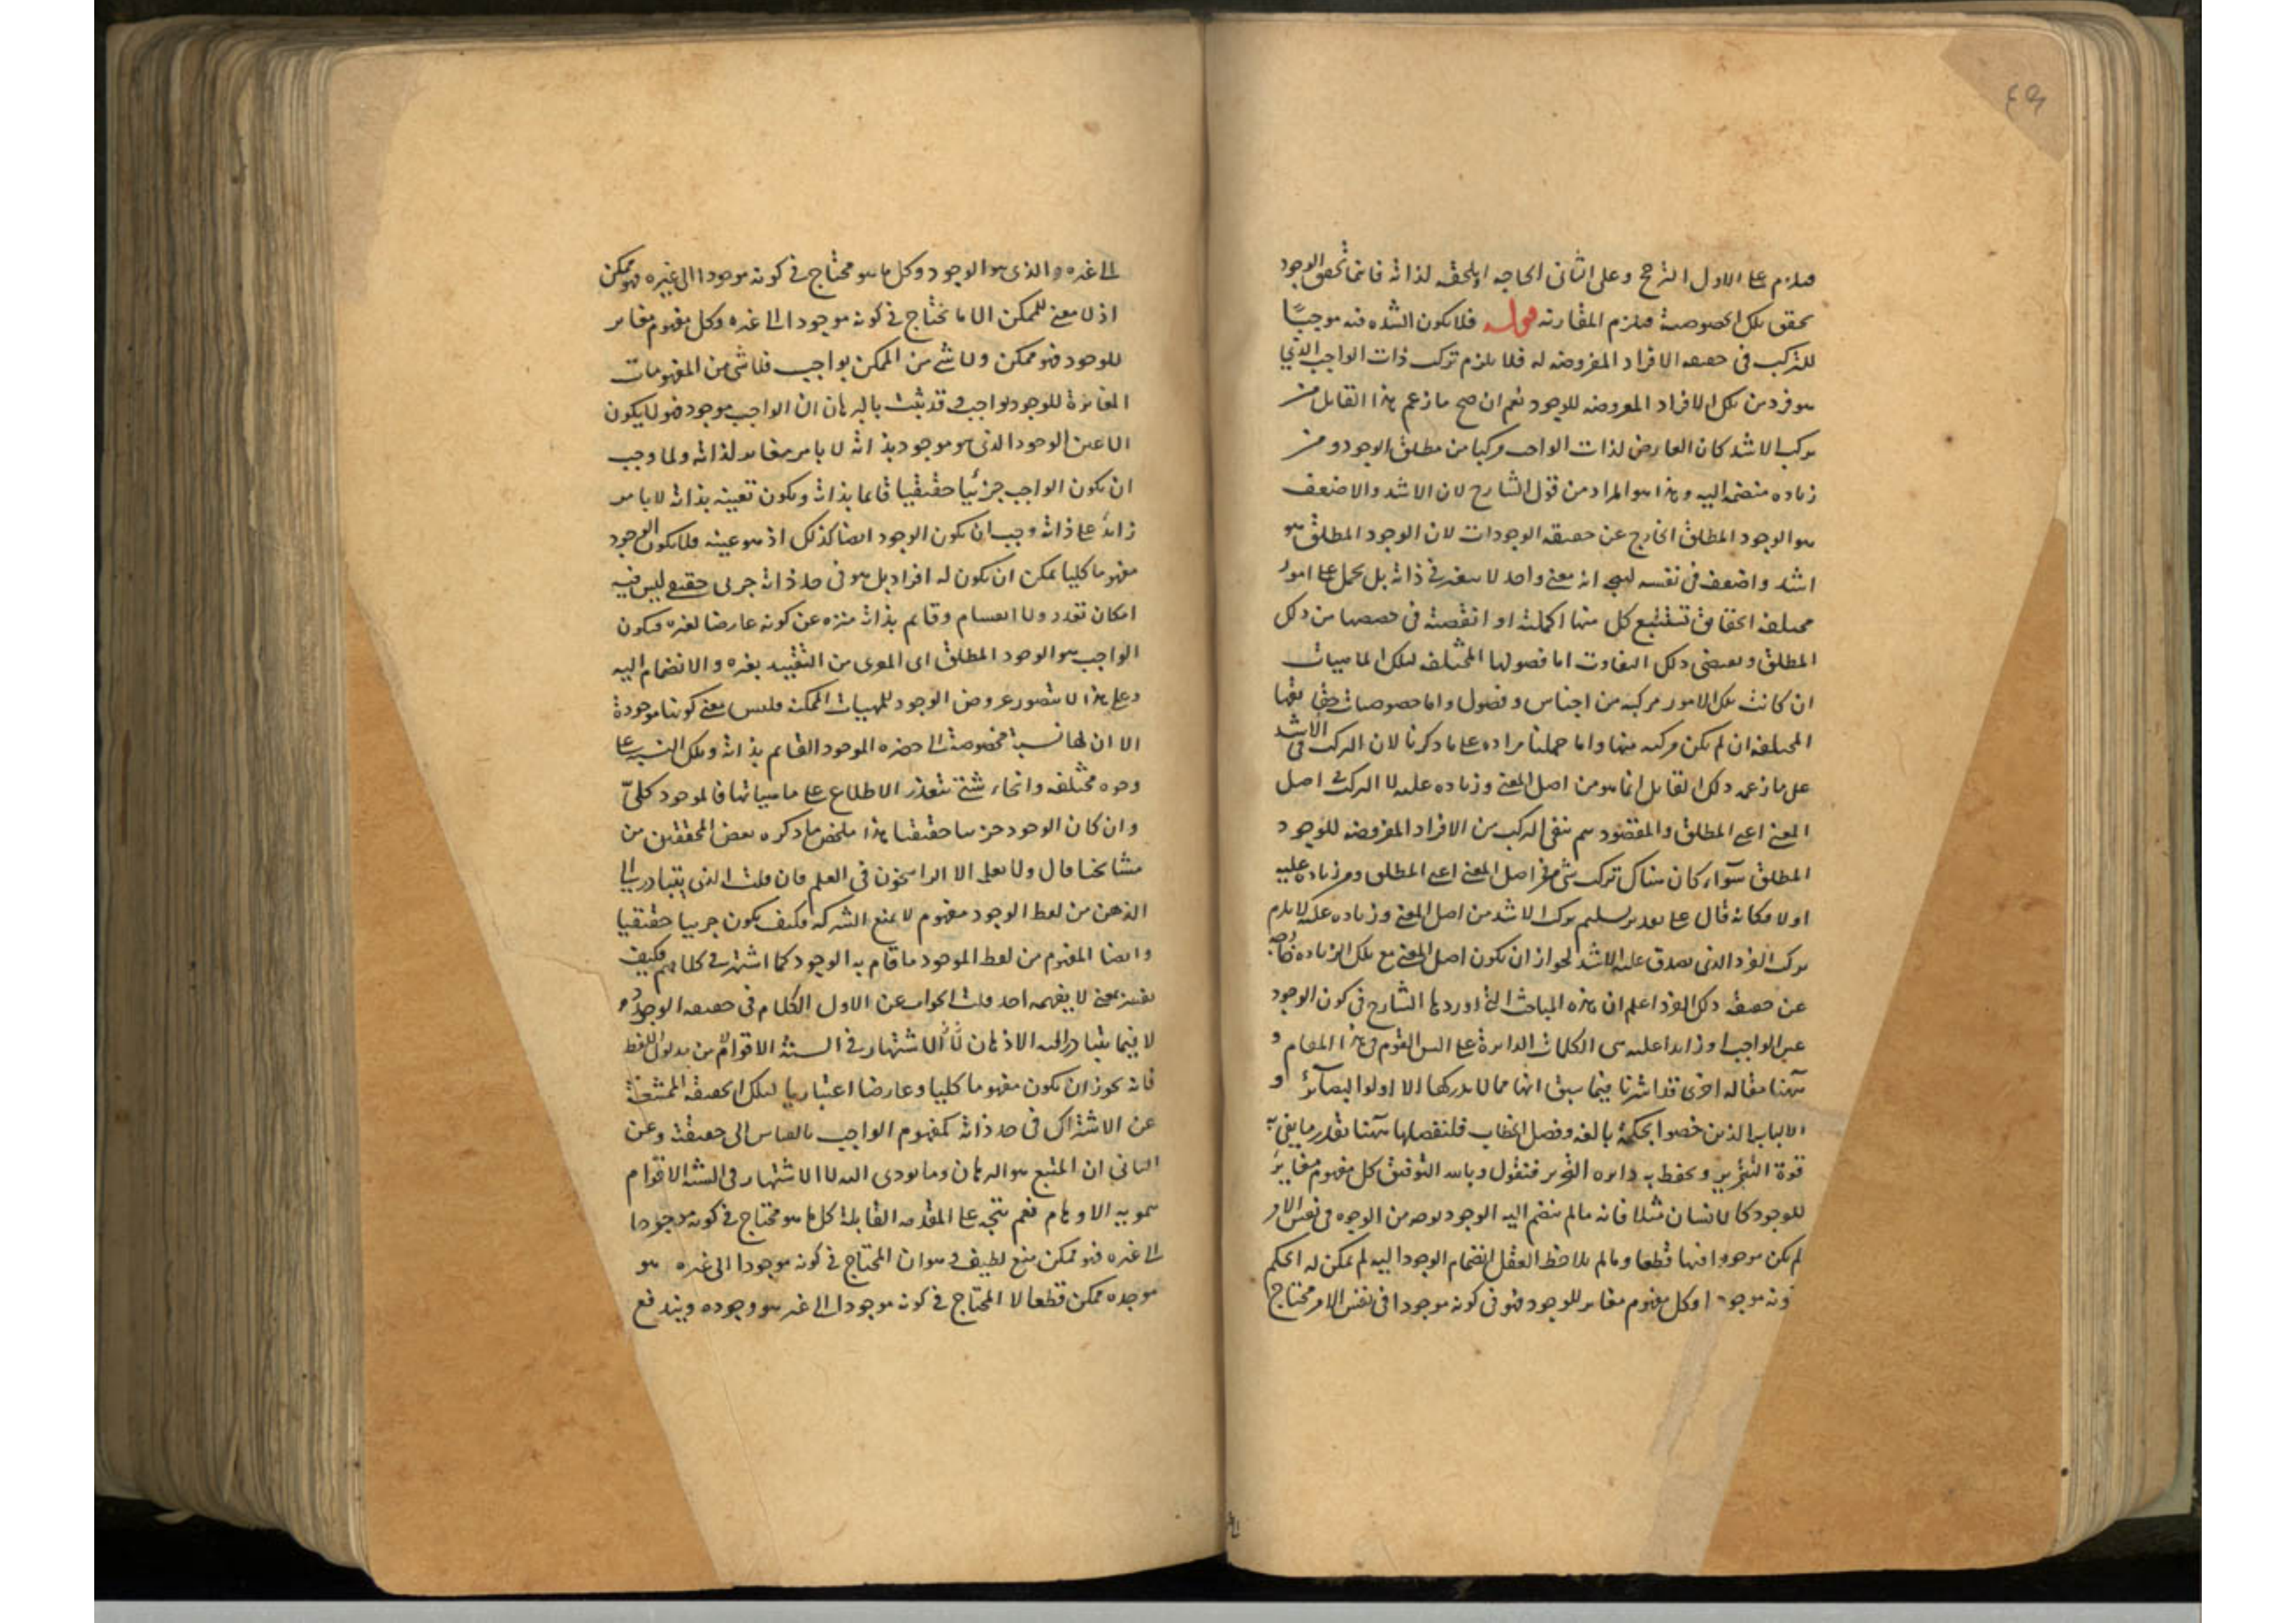 فيلزم على الاول الترجيح وعلى الثانى الحاجه او يلحقه لذاته فاينما تحقق الوجود
تحقق تلك الخصوصية فيلزم المقارنه قوله فلا يكون الشده فيه موجبًا
للتركب فى حصصه الافراد المفروضه له فلا يلزم تركب ذات الواجب الذي
هو فرد من تلك الافراد المعروضه للوجود نعم ان صح ما زعم هذا القايل من
تركب الاشد كان العارض لذات الواجب مركبا من مطلق الوجود ومن
زياده منضمه اليه وهذا هو المراد من قول الشارح لان الاشد والاضعف
هو الوجود المطلق الخارج عن حقيقه الوجودات لان الوجود المطلق هو
اشد واضعف فى نفسه انه معنى واحد لا يتغير فى ذاته بل يحمل على امور
مختلفه الحقايق تستتبع كل منها اكمليته او انقصيته فى حصصها من ذلك
المطلق ويقتضى ذلك التفاوت اما فصولها المختلفه لتلك الماهيات
ان كانت تلك الامور مركبه من اجناس وفصول واما خصوصيات حقايقها
المختلفه ان لم يكن مركبه منها وانما حملنا مراده على ما ذكرنا لان التركب فى الاشد
على ما زعمه ذلك القايل انما هو من اصل المعنى وزياده عليه لا التركب فى اصل
المعنى اعنى المطلق والمقصود هم نفى التركب من الافراد المفروضه للوجود
المطلق سوآء كان هناك تركب شئ من اصل المعنى اعنى المطلق ومن زياده عليه
اولا فكانه قال على تقدير تسليم تركب الاشد من اصل المعنى وزياده عليه لا يلزم
تركب الفرد الذى يصدق عليه الاشد لجواز ان يكون اصل المعنى مع تلك الزياده خارجه
عن حقيقه ذلك الفرد اعلم ان هذه المباحث التى اوردها الشارح فى كون الوجود
عين الواجب او زايدا عليه هى الكلمات الدايرة على السن القوم فى هذا المقام و
ههنا مقاله اخرى قد اشرنا فيما سبق انها مما لا يدركها الا اولوا البصآئر و
الالباب الذين خصوا بحكمة بالغه وفصل الخطاب فلنفصلها ههنا بقدر ما يفى به
قوة التحرير ويحفظ به دايره التحرير فنقول وبالله التوفيق كل مفهوم مغاير
للوجود كالانسان مثلا فانه ما لم ينضم اليه الوجود بوجه من الوجوه فى نفس الامر
لم يكن موجودا فيها قطعا وما لم يلاحظ العقل انضمام الوجود اليه لم يمكن له الحكم
ونه موجودا وكل مفهوم مغاير للوجود فهو فى كونه موجودا فى نفس الامر محتاج
الى غيره والذى هو الوجود وكل ما هو محتاج فى كونه موجودا الى غيره فهو ممكن
اذ لا معنى للممكن الا ما يحتاج فى كونه موجودا الى غيره وكل مفهوم مغاير
للوجود فهو ممكن ولا شئ من الممكن بواجب فلا شئ من المفهومات
المغايرة للوجود بواجب وقد ثبت بالبرهان ان الواجب موجود فهو لا يكون
الا عين الوجود الذى هو موجود بذاته لا بامر مغاير لذاته ولما وجب
ان يكون الواجب جزئيا حقيقيا قايما بذاته ويكون تعينه بذاته لا بامر
زايد على ذاته وجب ان يكون الوجود ايضا كذلك اذ هو عينه فلا يكون الوجود
مفهوما كليا يمكن ان يكون له افراد بل هو فى حد ذاته جزئى حقيقى ليس فيه
امكان تعدد ولا انقسام وقايم بذاته منزه عن كونه عارضا لغيره فيكون
الواجب هو الوجود المطلق اى المعرى من التقييد بغيره والانضمام اليه
وعلى هذا لا يتصور عروض الوجود للمهيات الممكنه فليس معنى كونها موجودة
الا ان لها نسبة مخصوصة الى حضره الموجود القايم بذاته وتلك النسبه على
وجوه مختلفه وانحاء شتى يتعذر الاطلاع على ماهياتها فالموجود كلىّ
وان كان الوجود جزئيا حقيقيا هذا ملخص ما ذكره بعض المحققين من
مشايخنا قال ولا يعلمه الا الراسخون فى العلم فان قلت الذى يتبادر الى
الذهن من لفظ الوجود مفهوم لا يمنع الشركه فكيف يكون جزئيا حقيقيا
وايضا المفهوم من لفظ الموجود ما قام به الوجود كما اشتهر فى كلامهم فكيف
يفسر بمعنى لا يفهمه احد قلت الجواب عن الاول الكلام فى حقيقه الوجود
لا فيما يتبادر اليه الاذهان الاشتهار فى السنة الاقوام من مدلول اللفظ
فانه يجوز ان يكون مفهوما كليا وعارضا اعتباريا لتلك الحقيقه الممتنعة
عن الاشتراك فى حد ذاته كمفهوم الواجب بالقياس الى حقيقته وعن
الثانى ان المتبع هو البرهان وما يودى اليه لا الاشتهار فى السنة الاقوام
الاوهام نعم يتجه على المقدمه القايلة كل ما هو محتاج فى كونه موجودا
الى غيره فهو ممكن منع لطيف وهو ان المحتاج فى كونه موجودا الى غيره هو
موجده ممكن قطعا لا المحتاج فى كونه موجودا الى غير هو وجوده ويندفع